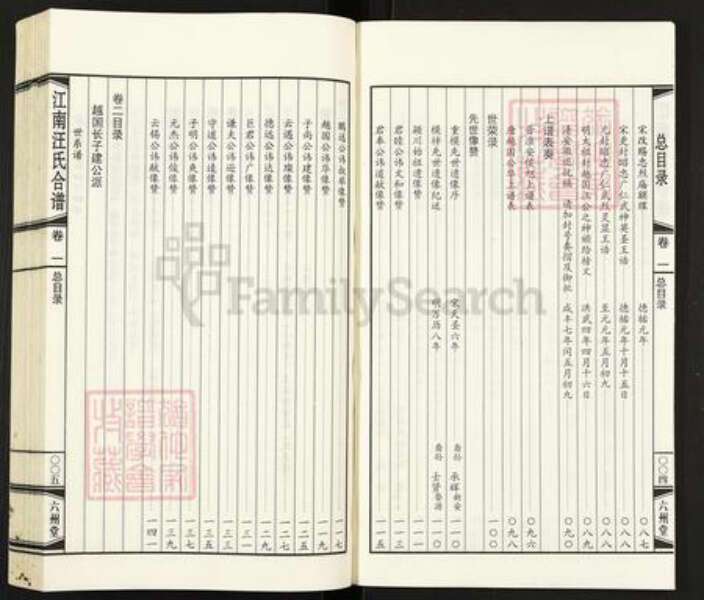 总目录
卷一 总目录
〇〇四
六州堂
宋改赐忠烈庙额牒 德祐元年 〇八七
宋更封昭忠广仁武神英圣王诰 德祐元年十月十五日 〇八八
元封昭忠广仁武烈灵显王诰 至元元年五月初九 〇八八
明太祖封越国汪公之神颁给榜文 洪武四年四月十六日 〇八九
清安徽巡抚福 请加封号奏摺及御批 咸丰七年闰五月初九 〇九〇
上谱表奏
晋淮安侯旭上谱表 〇九六
唐越国公华上谱表 〇九八
世荣录 一〇〇
先世像赞
重模先世遗像序 宋天圣六年 裔孙 一一〇
模祥先世遗像纪述 明万历八年 裔孙 一一〇
颍川始祖遗像赞 一一一
君睦公讳文和像赞 一一三
君泰公讳道献像赞 一一五
一一七
越国公讳华像赞 一一九
子尚公讳建像赞 一二五
云遇公讳璨像赞 一二七
德远公讳达像赞 一二九
巨君公讳广像赞 一三一
谦夫公讳逊像赞 一三三
守道公讳逵像赞 一三五
子明公讳爽像赞 一三七
元杰公讳俊像赞 一三九
云锡公讳献像赞 一四一
卷二目录
越国长子建公派
世系谱
江南汪氏合谱
卷一 总目录
〇〇五
六州堂
FamilySearch